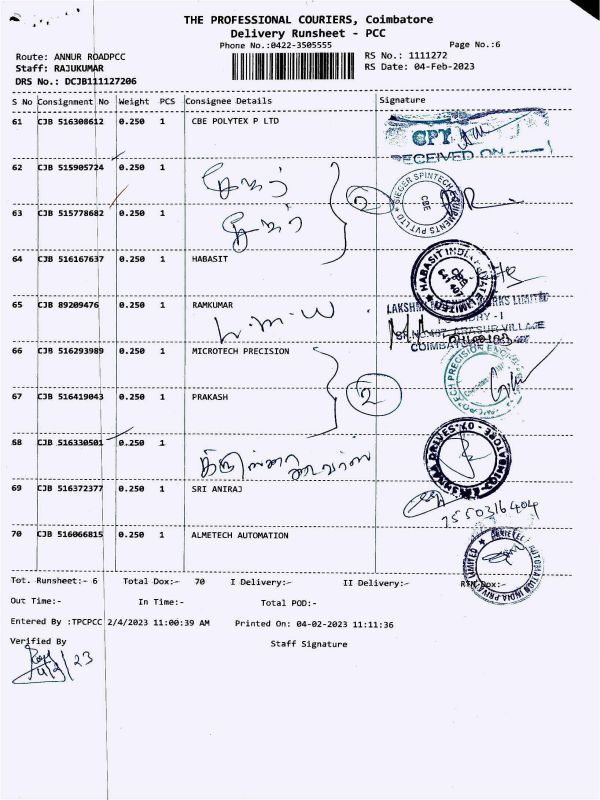 THE PROFESSIONAL COURIERS, Coimbatore
Delivery Runsheet - PCC
Phone No.:0422-3505555
Page No.:6
Route: ANNUR ROADPCC
RS No.: 1111272
Staff: RAJUKUMAR
RS Date: 04-Feb-2023
DRS No.: DCJB111127206
S No Consignment No Weight PCS Consignee Details Signature
61 CJB 516308612 0.250 1 CBE POLYTEX P LTD
CPT
RECEIVED ON
62 CJB 515905724 0.250 1
SIEGER SPINTECH EQUIPMENTS PVT LTD
CBE
63 CJB 515778682 0.250 1
64 CJB 516167637 0.250 1 HABASIT
HABASIT PRIVATE LIMITED
65 CJB 89209476 0.250 1 RAMKUMAR
L.M.W
FOUNDRY - I
ARASUR VILLAGE
66 CJB 516293989 0.250 1 MICROTECH PRECISION
MICROTECH PRECISION
67 CJB 516419043 0.250 1 PRAKASH
2
68 CJB 516330501 0.250 1
COIMBATORE
69 CJB 516372377 0.250 1 SRI ANIRAJ
7550316404
70 CJB 516066815 0.250 1 ALMETECH AUTOMATION
AUTOMATION INDIA PRIVATE LIMITED
Tot. Runsheet:- 6 Total Dox:- 70 I Delivery:- II Delivery:- RTN Dox:-
Out Time:- In Time:- Total POD:-
Entered By :TPCPCC 2/4/2023 11:00:39 AM Printed On: 04-02-2023 11:11:36
Verified By Staff Signature
4/2/23